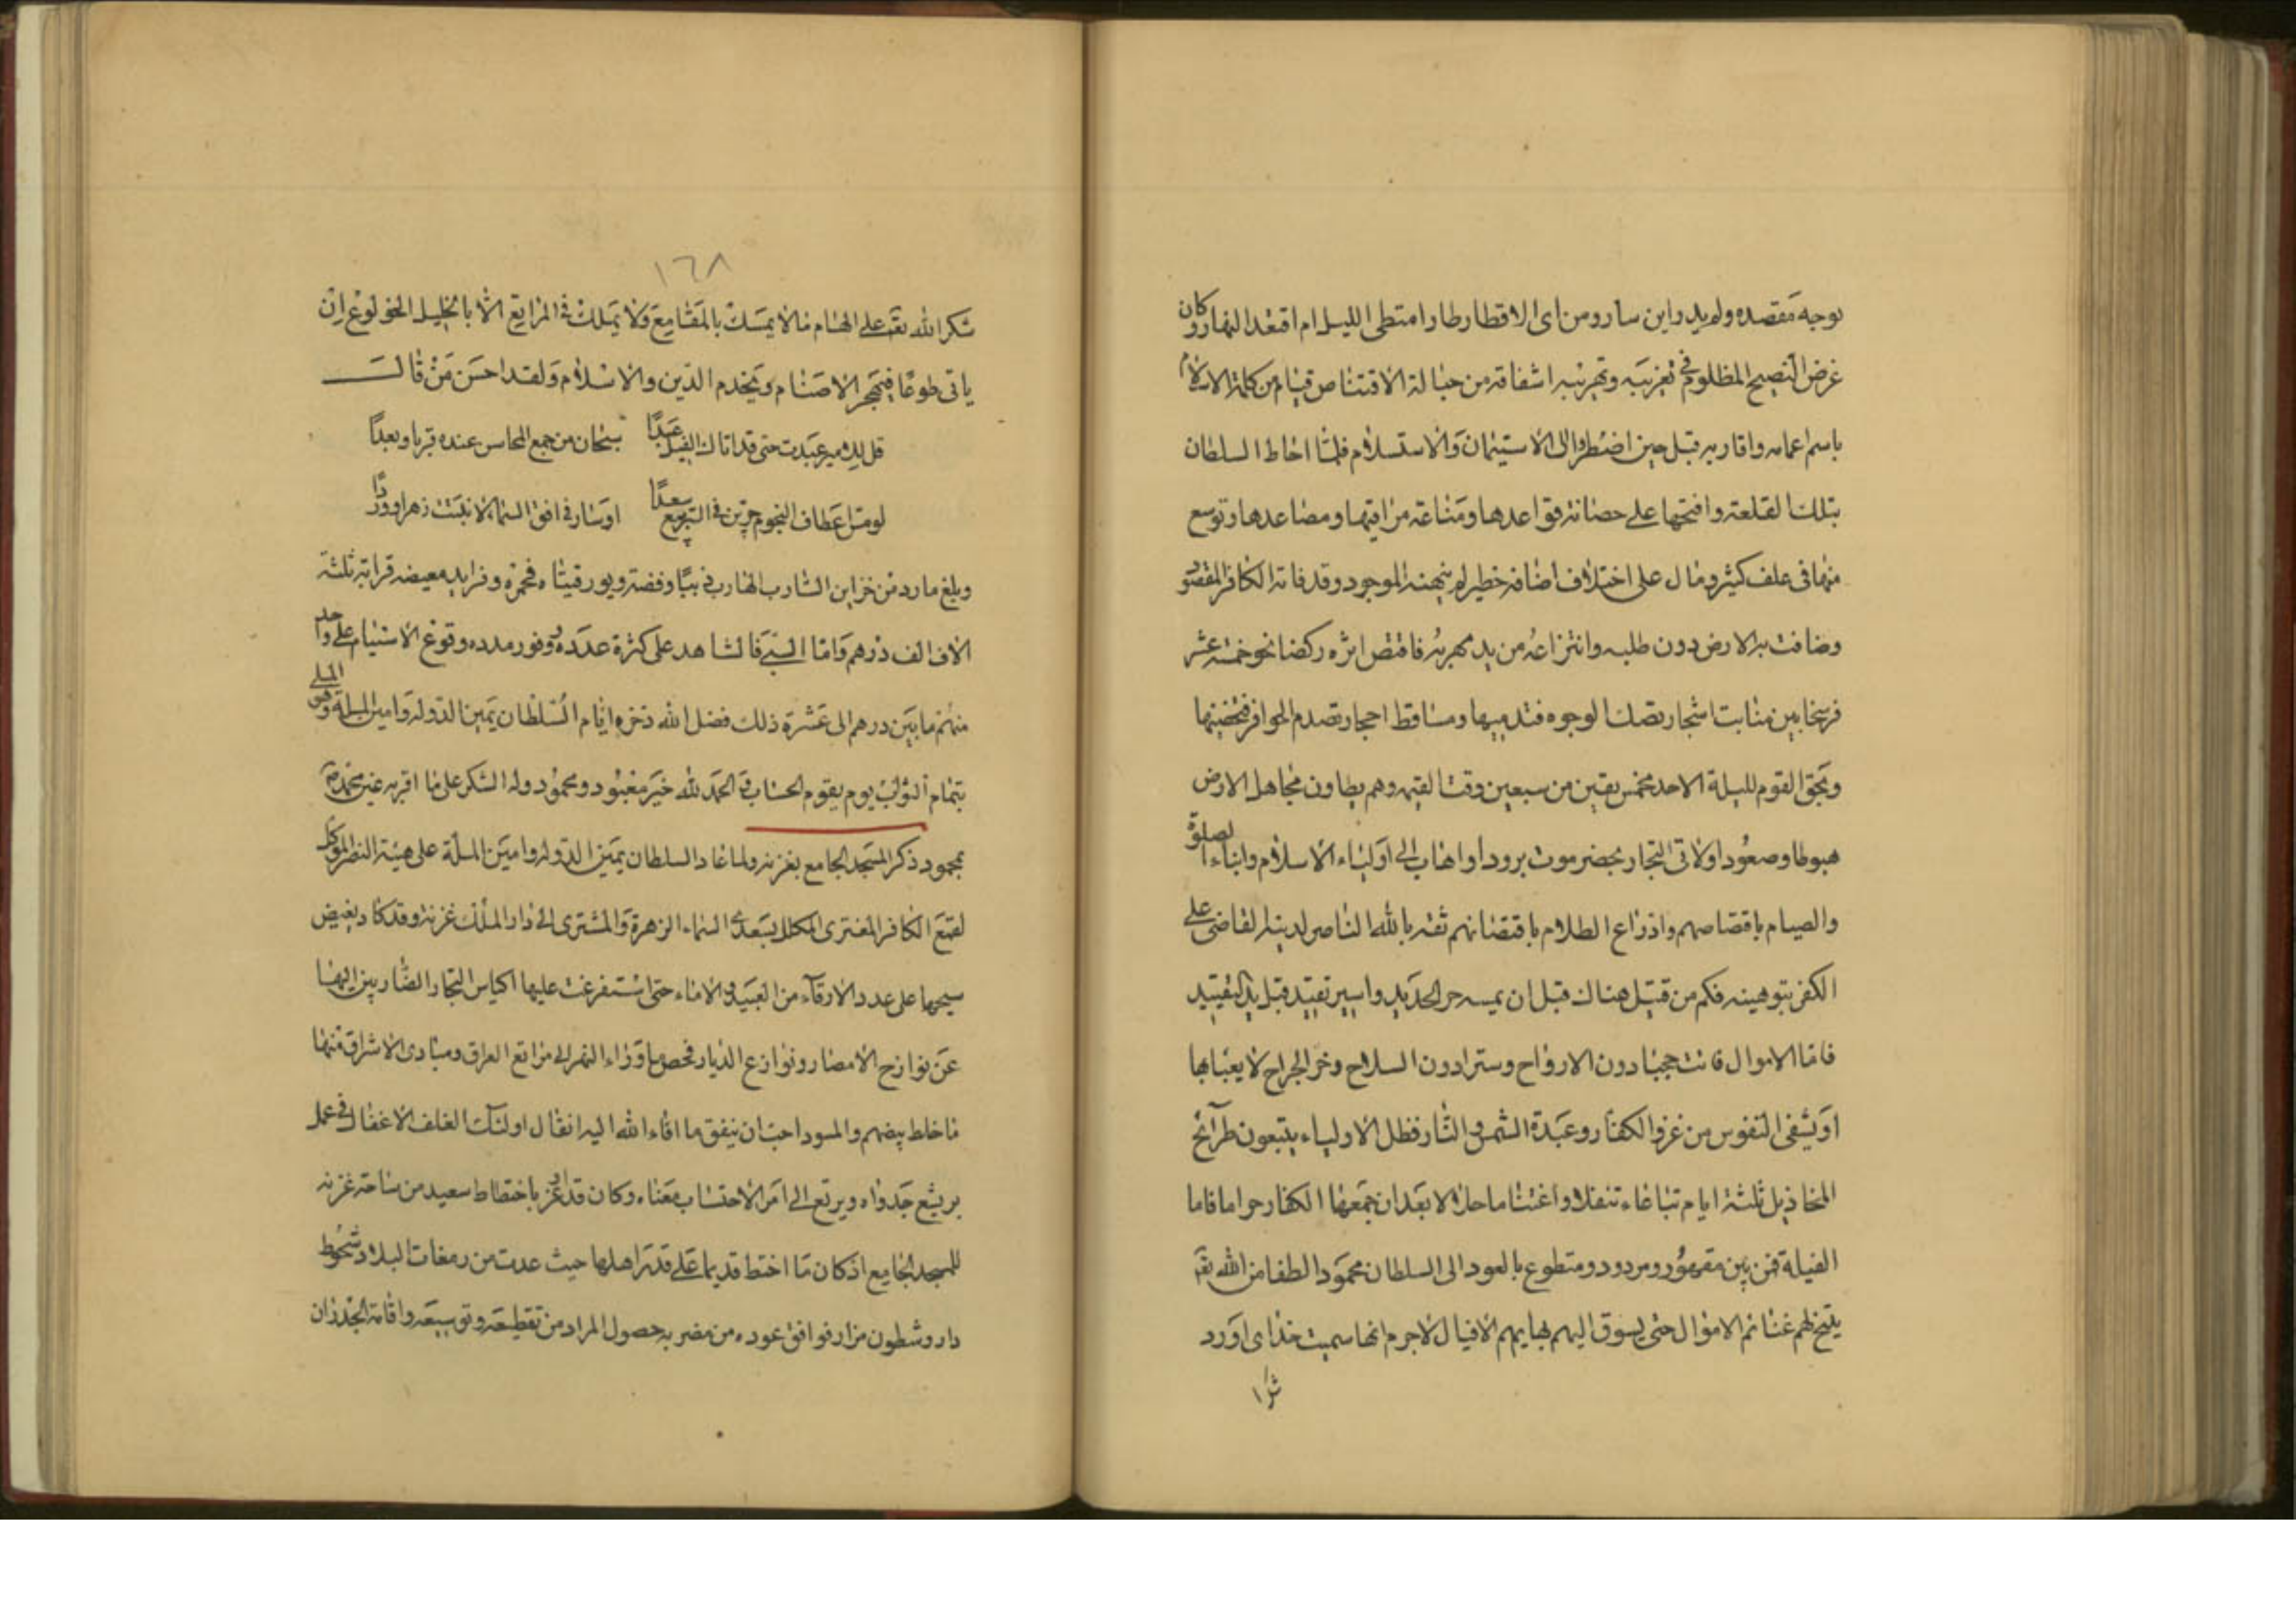 توجه مقصده ولم يدر اين سار ومن اى الاقطار طار امتطى الليل ام اقتعد النهار وكان
غرض النصيح المظلوم فى تغريبه وتهريبه اشفاقه من حبالة الاقتناص قيام من كلمة الاسلام
باسر اعمامه واقاربه قبل حين اضطروا الى الاستيمان والاستسلام فلما احاط السلطان
بتلك القلعة وافتتحها على حصانة قواعدها ومناعة مراقيها ومصاعدها وتوسع
منها فى علف كثير ومال على اختلاف اضافه خطير لم يهنه الموجود وقد فاته الكافر المقصود
وضاقت به الارض دون طلبه وانتزاعه من يد مهربه فاقتص اثره ركضا نحو خمسة عشر
فرسخا بين منابت اشجار تصك الوجوه فتدميها ومساقط احجار تصدم الحوافر فتحفيها
ولحق القوم لليلة الاحد لخمس بقين من سبعين وقت القيهم وهم يطاون مجاهل الارض
هبوطا وصعودا ولاتى التجار بحضرموت برودا واهاب الى اولياء الاسلام وابناء الصلوة
والصيام باقتصاصهم واذراع الظلام باقتضانهم ثقة بالله الناصر لدينه القاضى على
الكفر بتوهينه فكم من قتيل هناك قبل ان يمسه حر الحديد واسير تقيد قبل يد التقييد
فاما الاموال فانت حجبا دون الارواح وسترا دون السلاح وخر الجراح لا يعبا بها
او تشفى النفوس من غزو الكفار وعبدة الشمس والنار فظل الاولياء يتبعون طرائح
المخاذيل ثلثة ايام تباعا تنفلا واغتناما حلالا بعد ان جمعها الكفار حراما فاما
الفيلة فمن بين مقهور ومردود ومتطوع بالعود الى السلطان محمود الطفا من الله تعه
يتيح لهم غنائم الاموال حتى يسوق اليهم بهايم الافيال لاجرم انها سميت خذاى اورد
شكرا
١٦٨
شكرا لله تعه على الهام ما لا يمسك بالمقامع ولا يملك فى المراتع الا بالخليل الخولوع ان
ياتى طوعا فيهجر الاصنام ويخدم الدين والاسلام ولقد احسن من قال
قل للامير عبدت حتى قد اتاك الفيل عبدا سبحان من جمع المحاسن عنده قربا وبعدا
لو مس اعطاف النجوم جرين فى التربيع سعدا او سار فى افق السماء لانبتت زهرا ووردا
وبلغ ما رد من خزاين الشارب الهارب ذهبيا وفضة ويورقيتا محمرة وفرايد معيضه قرابة ثلثة
الاف الف درهم واما السبى فالشاهد على كثرة عدده ووفور مدده وقوع الاستيام على واحد
منهم ما بين درهم الى عشرة ذلك فضل الله ذخره ايام السلطان يمين الدوله وامين المله وهى الملى
بتمام الثواب يوم يقوم الحساب فى الحمد لله خير معبود ومحمود وله الشكر على ما اقر به عين محمد صم
بمحمود ذكر المسجد الجامع بغزنه ولما عاد السلطان يمين الدوله وامين الملة على هيئة النصر الموكل
لقمع الكافر المفترى المكلل بسعدى السماء الزهرة والمشترى الى دار الملك غزنة وقد كاد يغيض
سيحها على عدد الارقاء من العبيد والاماء حتى استفرغت عليها اكياس التجار الضاربين اليها
عن نوازح الامصار ونوازع الديار فحص ما وراء النهر الى مراتع العراق ومبادى الاشراق منها
ما خلط بيضهم والسود احب ان ينفق ما افاء الله اليه انقال اولئك الغلف الاغفال فى عمل
بر يشع جدواه ويرتع الى امر الاحتساب معناه وكان قد اوعز باختطاط سعيد من ساحة غزنه
للمسجد الجامع اذ كان ما اختط قديما على قدر اهلها حيث عدت من رمغات البلاد شحوط
دار وشطون مزار فوافق عوده من مضربه حصول المراد من تقطيعه وتوسيعه واقامة الجدران